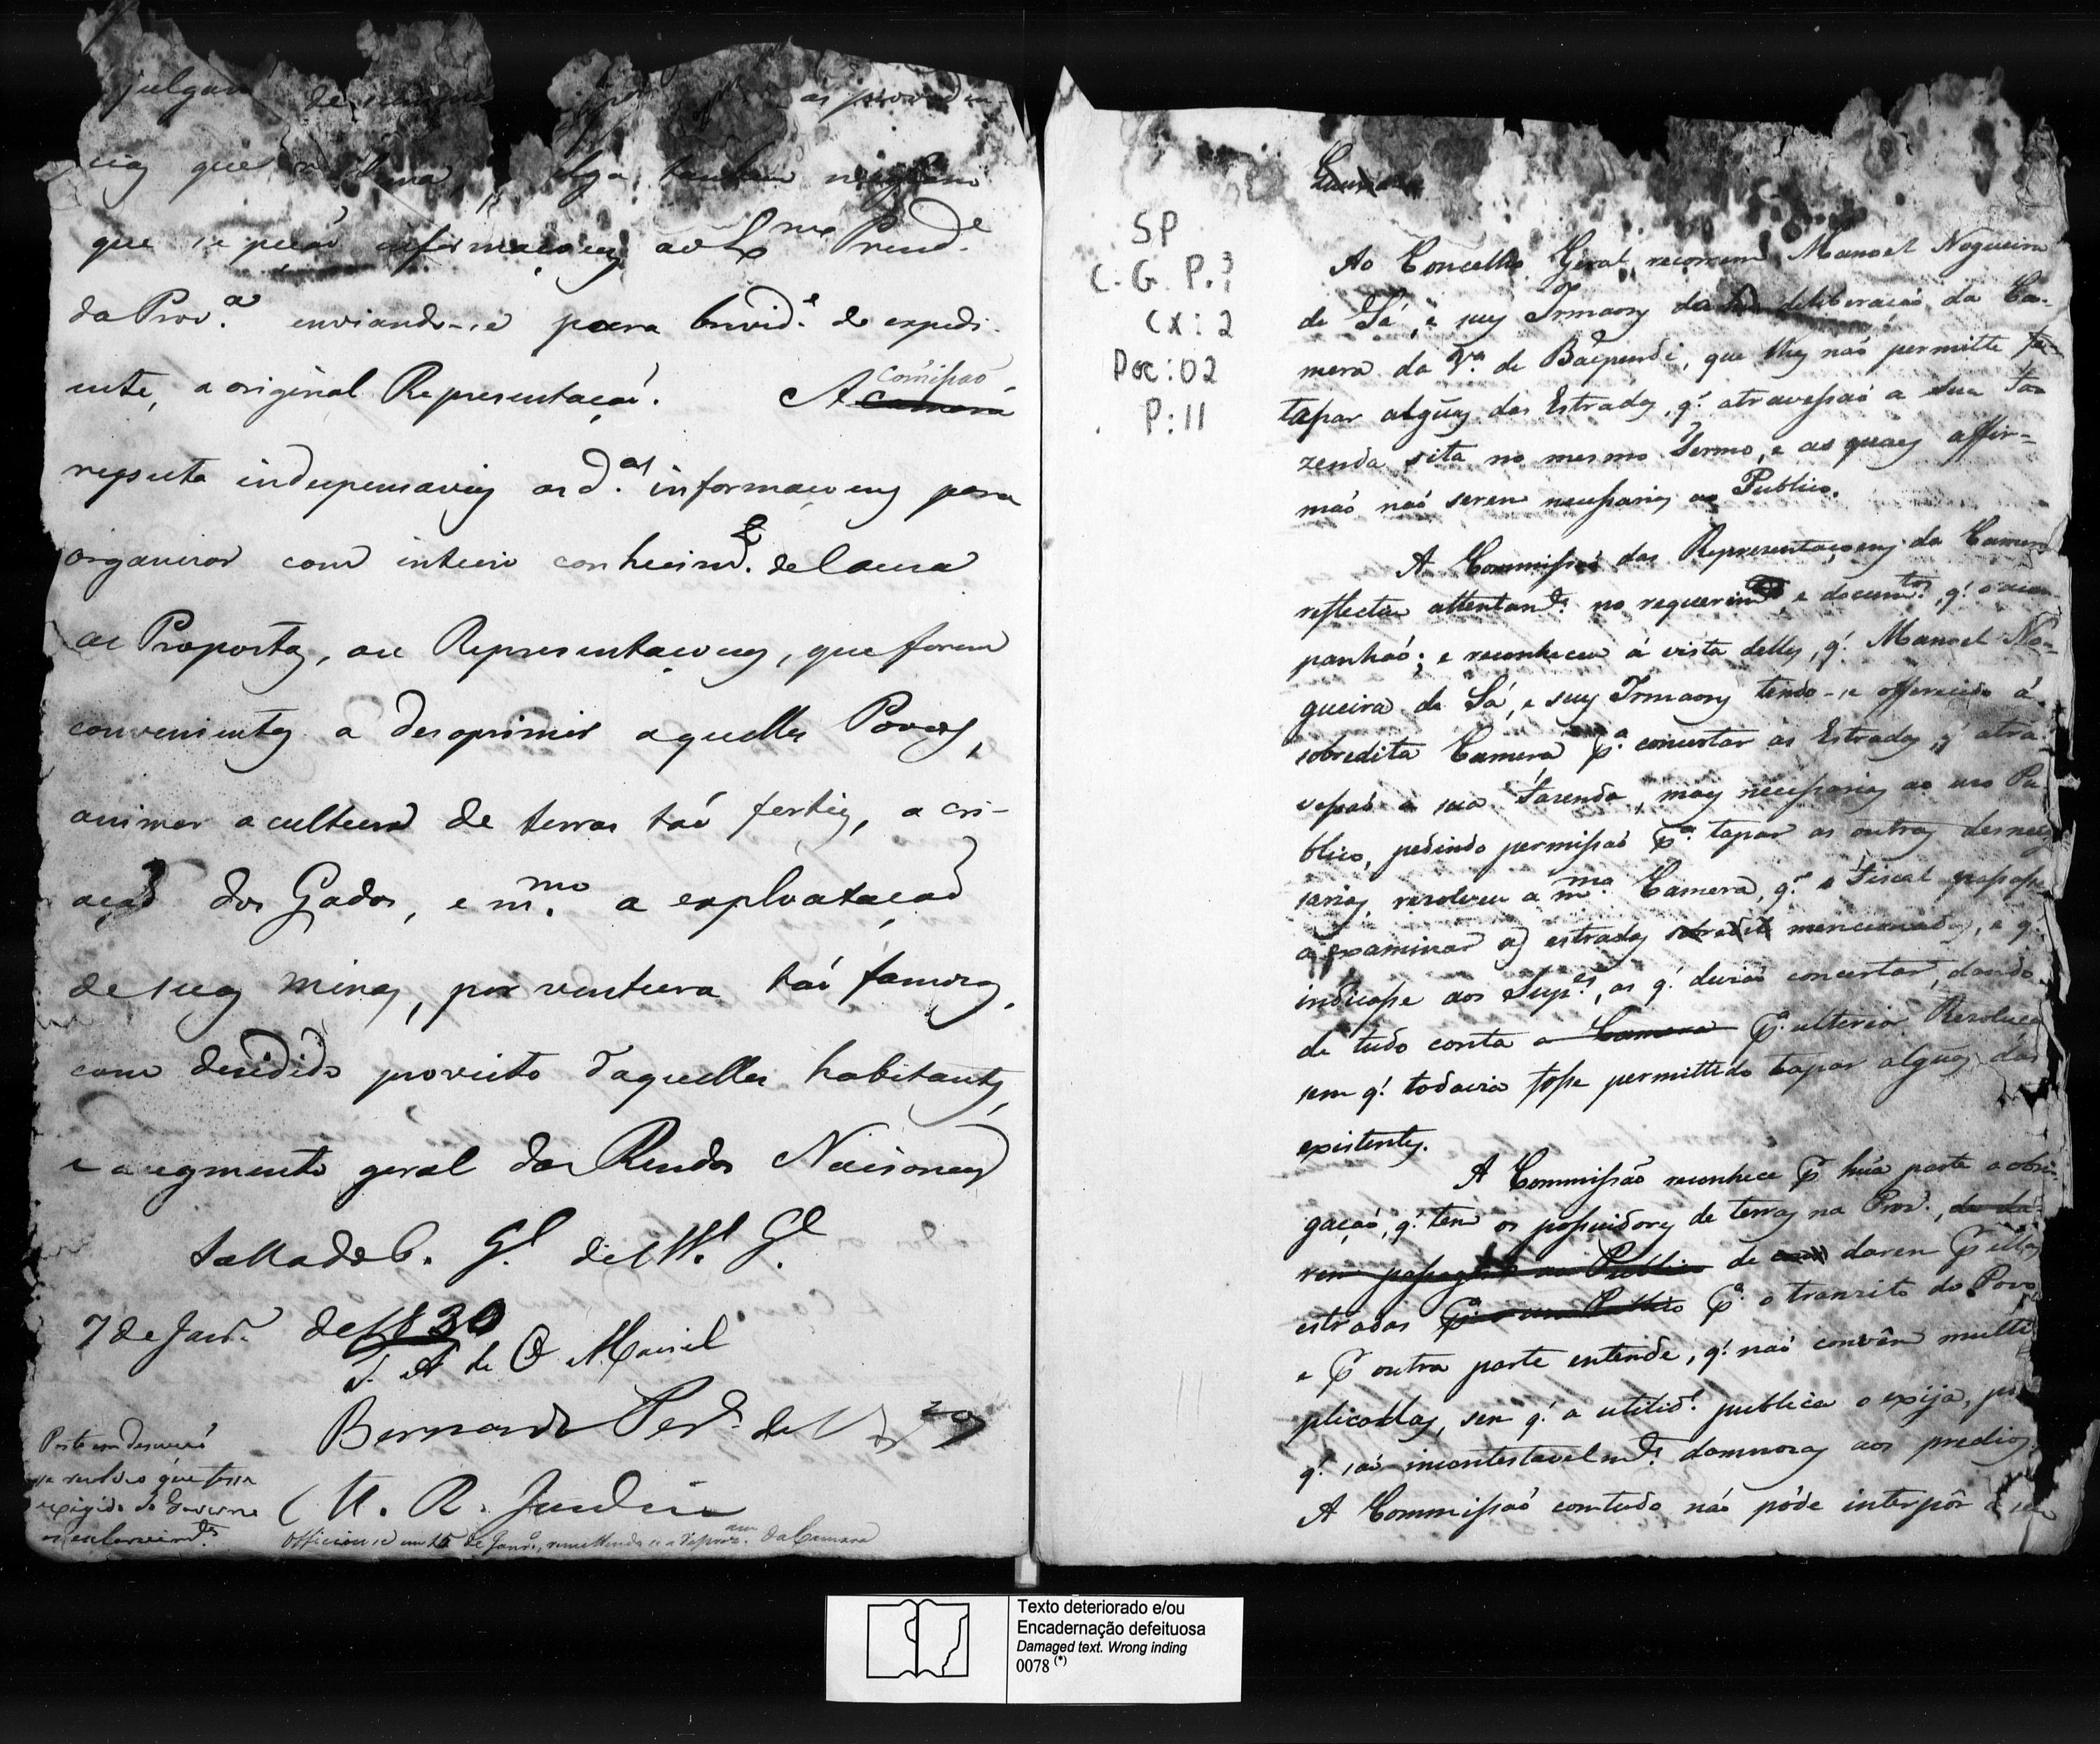 julgan de as providen-
cias que
que se peção informaçoens ao Exmo Presid.e
da Prov.a enviando-se para brevid.e do expedi-
ente, a original Representação. A comissão camera
reputa indispensaveis as d.as informaçoens para
organisar com inteiro conhecim.to de Causa
as Propostas, ou Representaçoens, que forem
convenientes a desoprimir aquelles Povos,
animar a cultura de terras tão ferteis, a cri-
ação dos Gados, e m.mo a exploatação
de suas minas, por ventura tão famosas,
com decidido proveito d'aquelles habitantes,
e augmento geral das Rendas Nacionaes
Salla do C. G.l de M. G.
7 de Janr.o de 1830
J. A. de O. Maciel
Bernardo Per.a de Vas.cos
M. R. Jardim
Posto em discussão
se resolveo que fosse
exigido do Governo
os esclarecim.tos
Officiou-se em 15 de Janr.o, remettendo-se a Repres.am da Camara
SP
C. G. P. 3
CX: 2
Doc: 02
P: 11
Ao Concelho Geral recorrem Manoel Nogueira
de Sá, e seus Irmaons da deliberação da Ca-
mera da V.a de Baependi, que lhes não permitte
tapar algũas das Estradas, q.' atravessão a sua Fa-
zenda sita no mesmo Termo, e as quaes affir-
mão não serem necessarias ao Publico.
A Commissão das Representaçoens da Camera
reflectiu attentam.te no requerim.to e docum.tos q.' o acom-
panhão; e reconheceu á vista delles, q.' Manoel No-
gueira de Sá, e seus Irmaons tendo-se offerecido á
sobredita Camera p.a concertar as Estradas q.' atra-
vessão a sua Fazenda, mais necessarias ao uso Pu-
blico, pedindo permissão p.a tapar as outras desneces-
sarias, resolveu a m.ma Camera, q.' o Fiscal passasse
a examinar as estradas sobredit mencionadas, e q.'
indicasse aos Sup.es, as q.' devião concertar, dando
de tudo conta a Camera p.a ulterior Resolução
sem q.' todavia fosse permittido tapar algũas das
existentes.
A Commissão reconhece p. hũa parte a obri-
gação, q.' tem os possuidores de terras na Prov.a, de da-
rem passagem ao Publico de darem p. ellas
estradas p.a o uso Publico p.a o transito do Povo,
e p. outra parte entende, q.' não convêm multi-
plicallas, sem q.' a utilid.e publica o exija, por
q.' são incontestavelm.te damnosas aos predios.
A Commissão comtudo não póde interpôr o seu
Texto deteriorado e/ou
Encadernação defeituosa
Damaged text. Wrong inding
0078 (*)